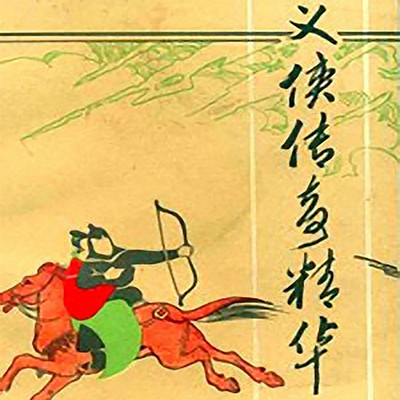 义侠传奇精华